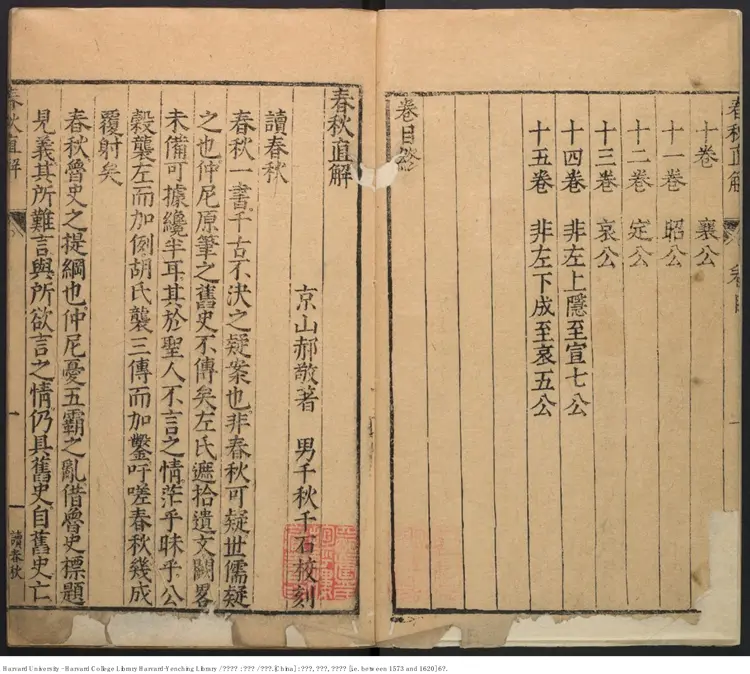 春秋直解
十卷 襄公
十一卷 昭公
十二卷 定公
十三卷 哀公
十四卷 非左上隱至宣七公
十五卷 非左下成至哀五公
卷目終
春秋直解
京山郝敬著 男千秋千石校刻
讀春秋
春秋一書千古不決之疑案也非春秋可疑世儒疑
之也仲尼原筆之舊史不傳矣左氏遮拾遺文闕畧
未備可據纔半耳其於聖人不言之情茫乎昧乎公
穀襲左而加例胡氏襲三傳而加鑿吁嗟春秋幾成
覆射矣
春秋魯史之提綱也仲尼憂五霸之亂借魯史標題
見義其所難言與所欲言之情仍具舊史自舊史亡
春秋直解
一
讀春秋
Harvard University - Harvard College Library Harvard-Yenching Library / ???? : ??? / ???. [China] : ???, ???, ???? [i.e. between 1573 and 1620] 6?.